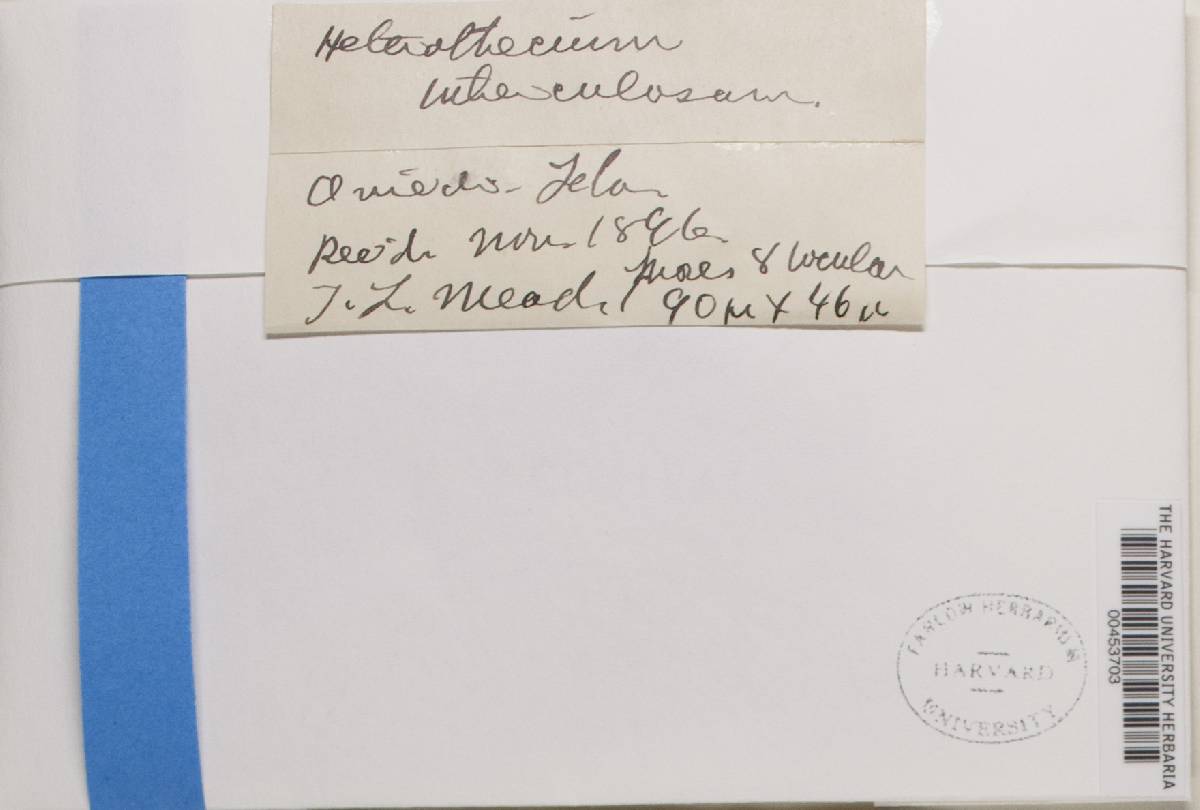 Heterothecium
tuberculosum.
Oviedo - Fla.
Rec'd. Nov. 1896.
T. L. Mead. Spores 8 locular
90µ x 46µ
FARLOW HERBARIUM
HARVARD
UNIVERSITY
THE HARVARD UNIVERSITY HERBARIA
00453703